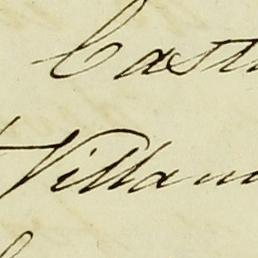 Cast
Villam